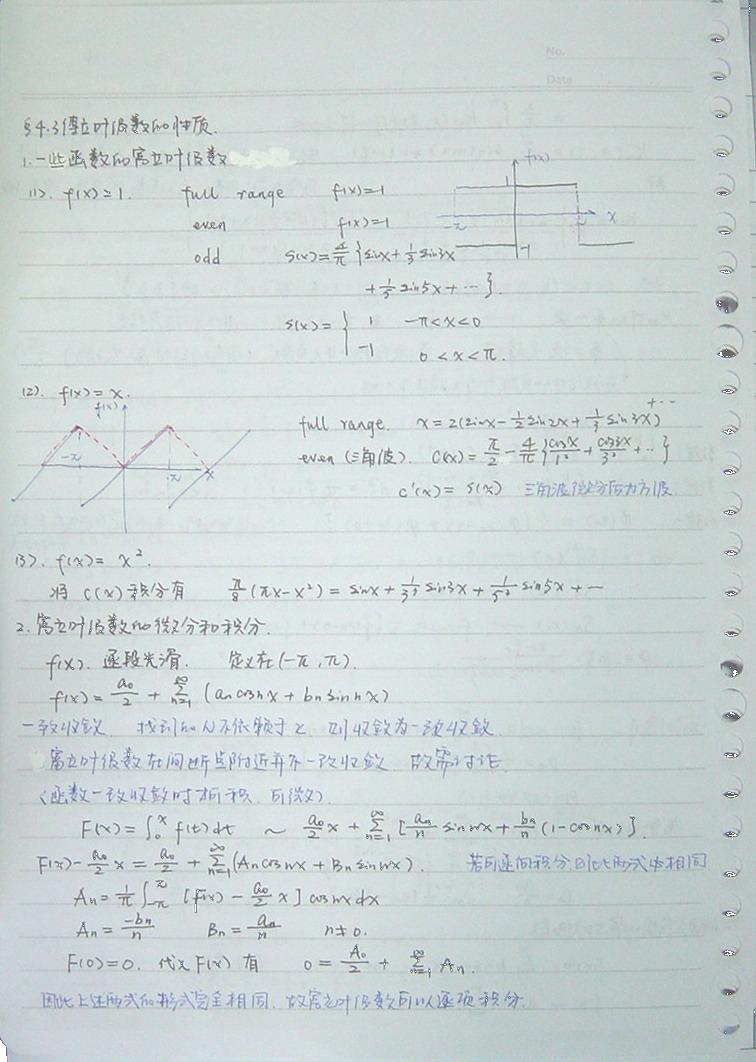 No.
Date
§4.3 傅立叶级数的性质.
1. 一些函数的富立叶级数
(1). f(x)=1. full range f(x)=1
even f(x)=1
odd S(x)=4/π {sinx+1/3 sin3x
+1/5 sin5x+⋯}.
S(x)={ 1 -π<x<0
-1 0<x<π.
f(x) 1 -π π x -1
(2). f(x)=x.
f(x) -π π x
full range. x=2(sinx-1/2 sin2x+1/3 sin3x)+⋯
even (三角波). C(x)=π/2-4/π{cosx/1²+cos3x/3²+⋯}
C'(x)=S(x) 三角波微分后为方波
(3). f(x)=x².
将 C(x) 积分有 π/8(πx-x²)=sinx+1/3³ sin3x+1/5³ sin5x+⋯
2. 富立叶级数的微分和积分.
f(x). 逐段光滑. 定义在(-π,π).
f(x)=a₀/2+∑_{n=1}^{∞}(aₙcosnx+bₙsinnx)
一致收敛 找到的N不依赖于x 则收敛为一致收敛.
富立叶级数在间断点附近并不一致收敛 故需讨论.
(函数一致收敛时可积, 可微).
F(x)=∫₀ˣ f(t)dt ~ a₀/2 x+∑_{n=1}^{∞}[aₙ/n sinnx+bₙ/n(1-cosnx)]
F(x)-a₀/2 x=A₀/2+∑_{n=1}^{∞}(Aₙcosnx+Bₙsinnx). 若可逐项积分,则此两式应相同
Aₙ=1/π∫_{-π}^{π}[F(x)-a₀/2 x]cosnxdx
Aₙ=-bₙ/n Bₙ=aₙ/n n≠0.
F(0)=0. 代入F(x)有 0=A₀/2+∑_{n=1}^{∞}Aₙ.
因此上述两式的形式完全相同. 故富立叶级数可以逐项积分.